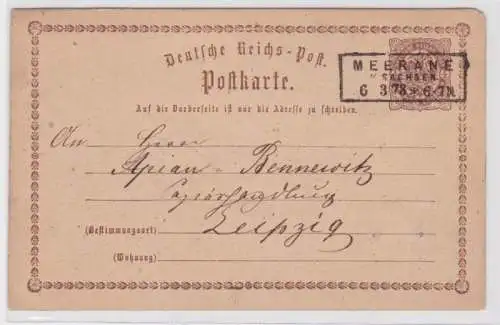 Deutsche Reichs-Post.
Postkarte.
MEERANE
i/ SACHSEN
6 3 73 6-7N.
Auf die Vorderseite ist nur die Adresse zu schreiben.
An Herrn
Apian-Bennewitz
Papierhandlung
Leipzig
(Bestimmungsort)
(Wohnung)